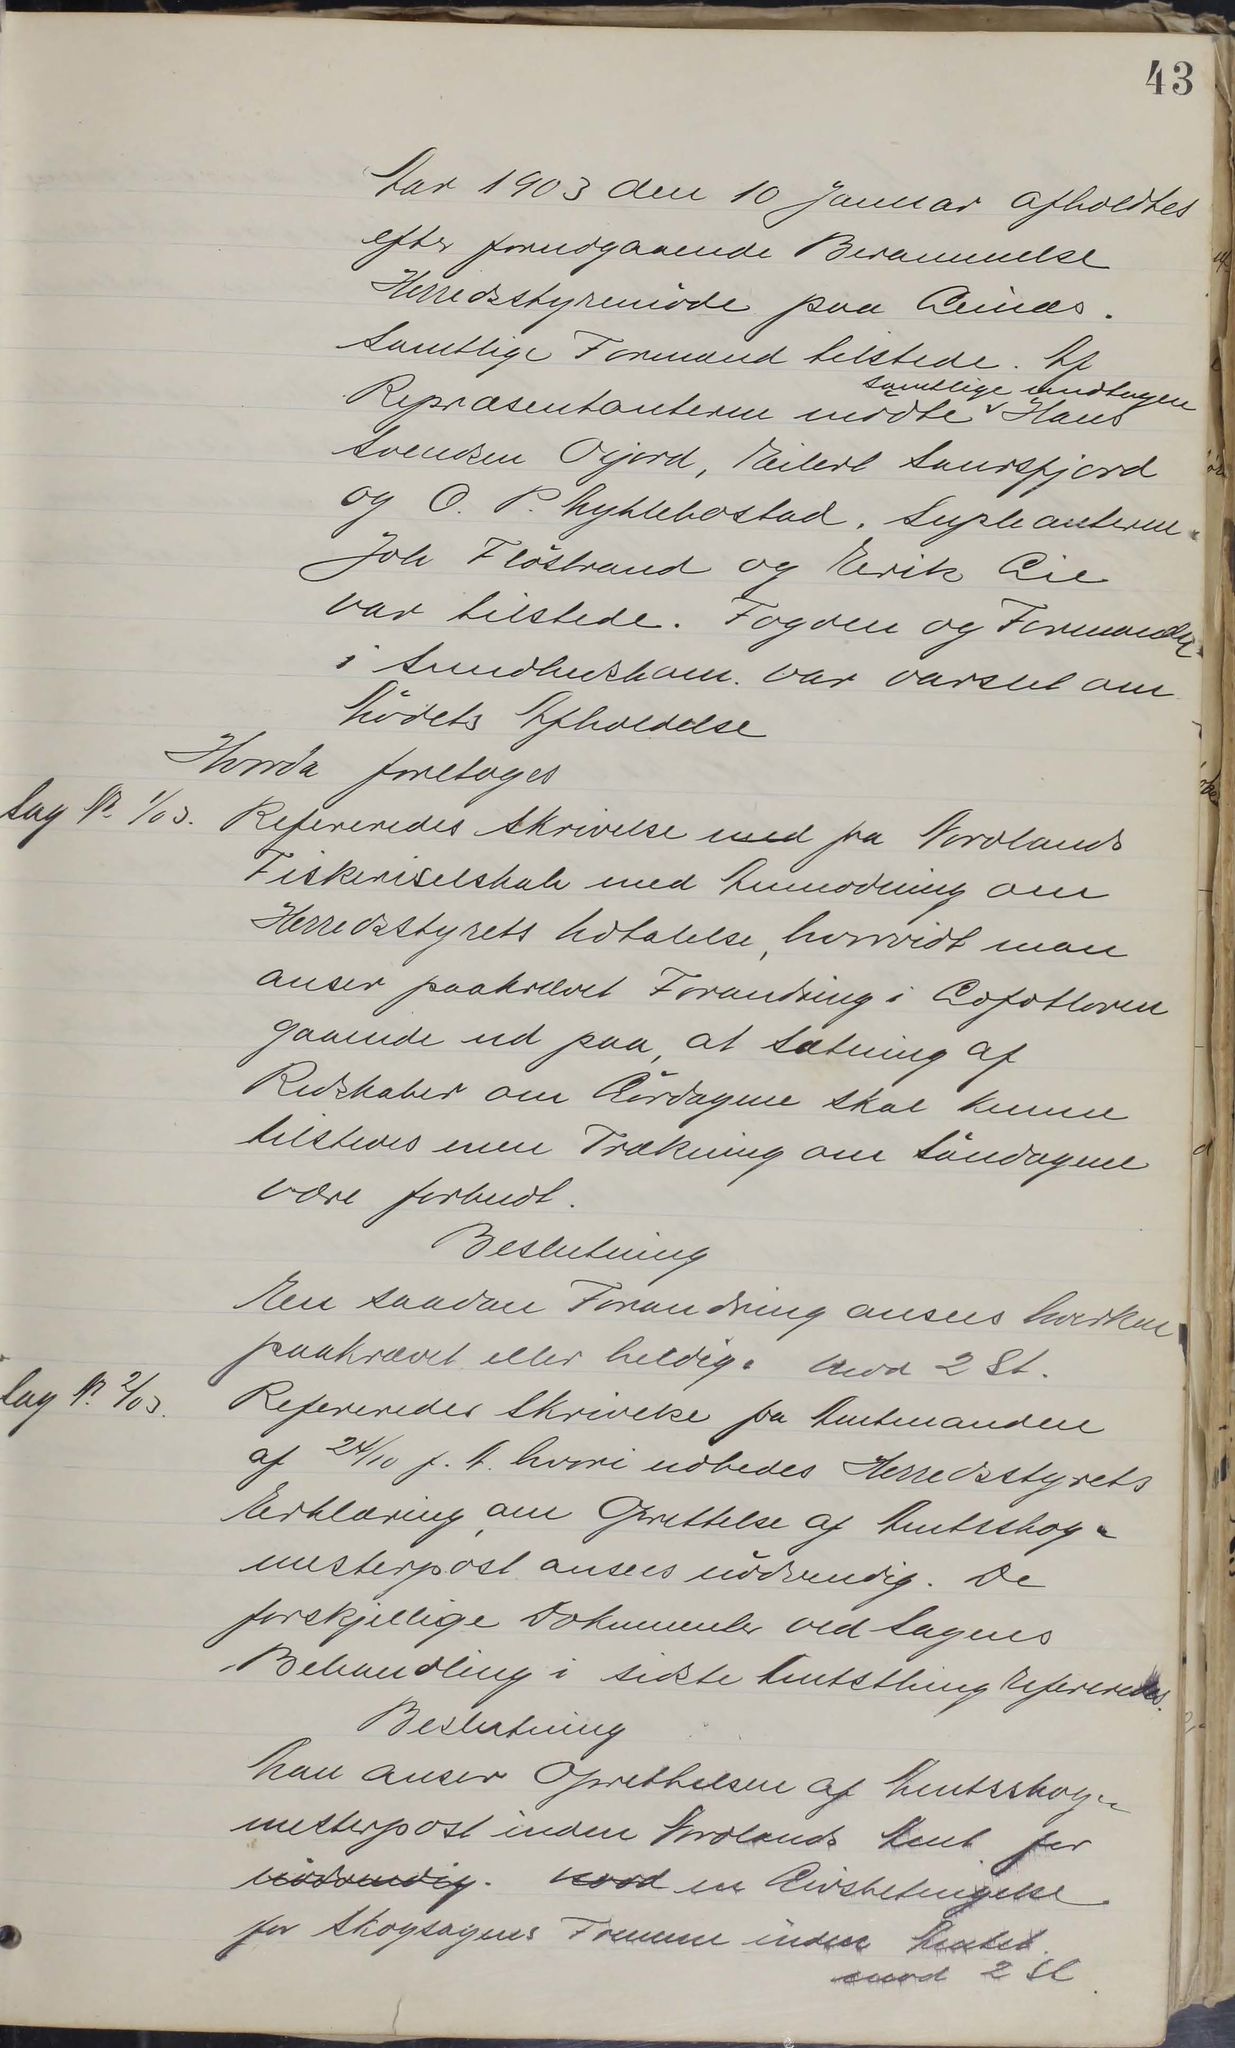 43
Aar 1903 den 10 Januar afholdtes
efter forudgaaende Berammelse
Herredsstyremöde paa Leinæs.
Samtlige Formænd tilstede. Af
samtlige undtagen
Repræsentanterne mödte Hans
Svendsen Osjord, Eilert Saursfjord
og O. P. Myklebostad. Supleanterne
Joh Flöstrand og Erik Lie
var tilstede. Fogden og Formanden
i Sundhedskom. var varslet om
Mödets Afholdelse
Hvorda foretoges
Sag № 1/03. Refereredes Skrivelse med fra Nordlands
Fiskeriselskab med Anmodning om
Herredsstyrets Udtalelse, hvorvidt man
anser paakrævet Forandring i Lofotloven
gaaende ud paa, at Sætning af
Redskaber om Lördagene skal kunne
tilstedes men Trækning om Söndagene
være forbudt.
Beslutning
En saadan Forandring ansees hverken
paakrævet eller heldig. mod 2 St.
Sag № 2/03. Refereredes Skrivelse fra Amtmanden
af 24/10 f. A. hvori udbedes Herredsstyrets
Erklæring, om Oprettelse af Amtsskog-
mesterpost ansees nödvendig. De
forskjellige Dokumenter ved Sagens
Behandling i sidste Amtsthing refereredes.
Beslutning
Man anser Oprettelsen af Amtsskog-
mesterpost inden Nordlands Amt for
nödvendig. mod en Livsbetingelse
for Skogsagens Fremme inden Amtet.
mod 2 St.